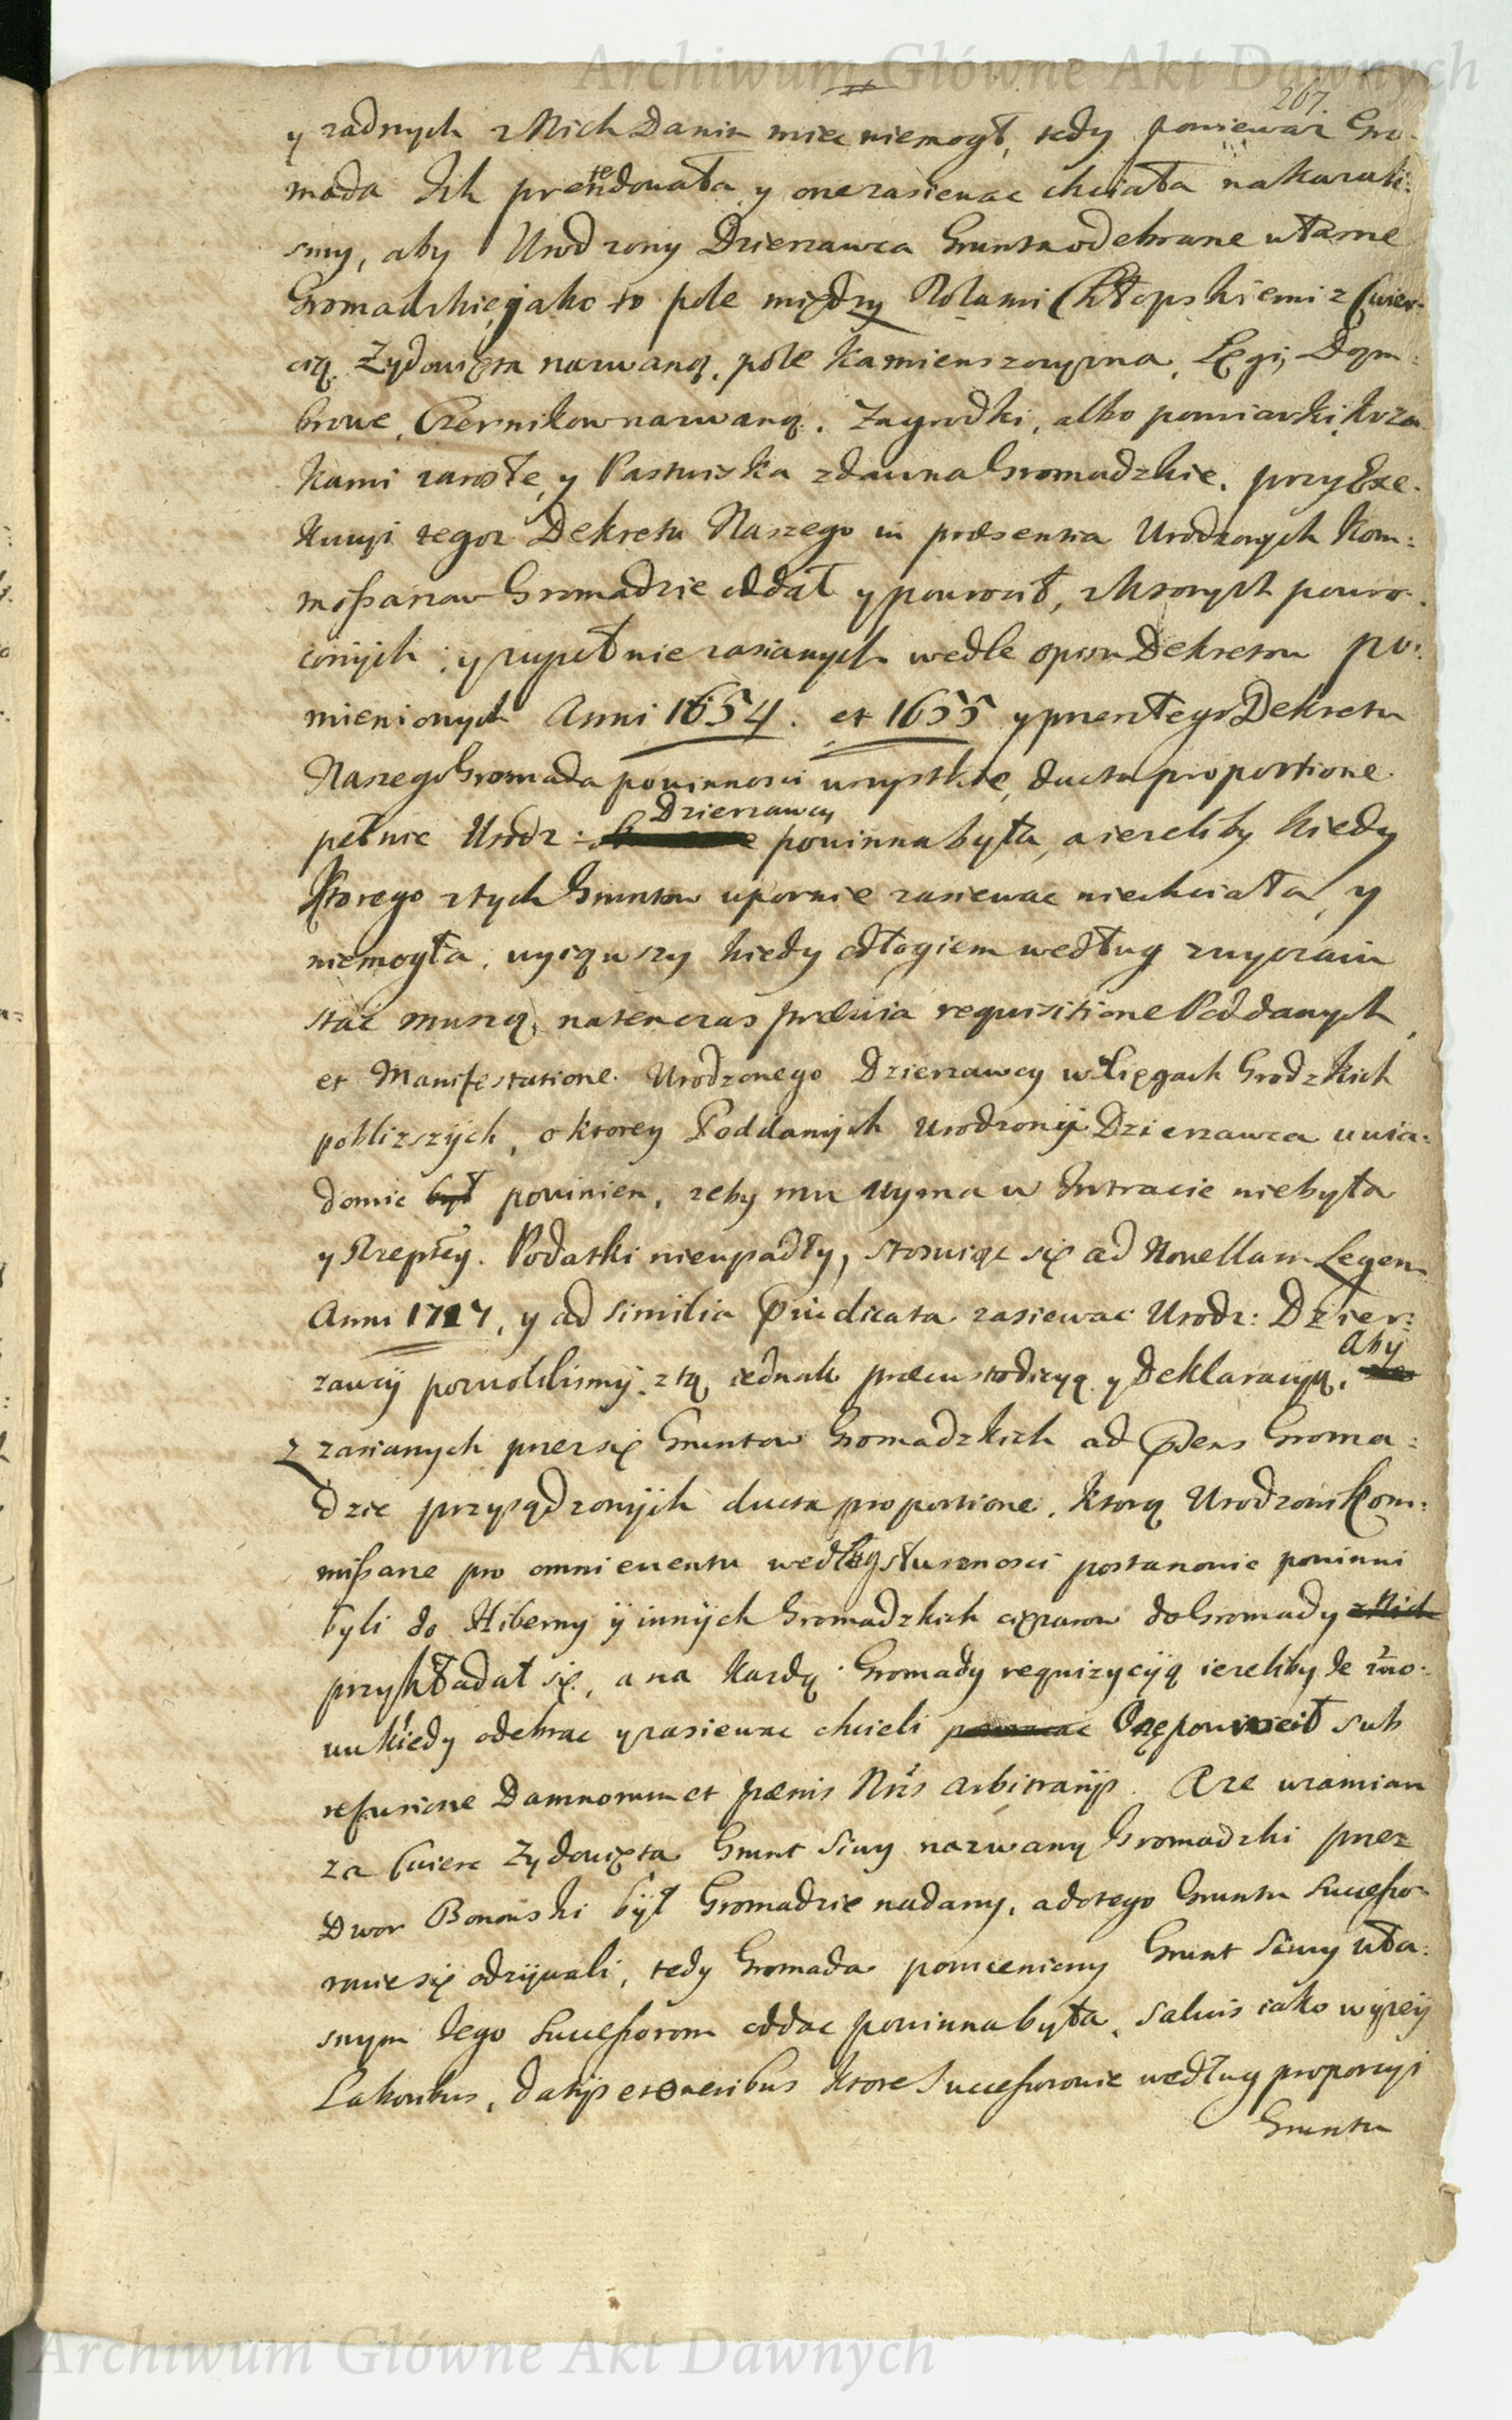 Archiwum Główne Akt Dawnych
267.
y zadnych z Nich Danin miec niemogł, tedy poniewaz Gro-
mada Ich pretendowała y one zasiewac chciała nakazali-
smy, aby Urodzony Dzierzawca Grunta odebrane własne
Gromadzkie, jako to pole między Rolami Chłopskiemi z Cwier-
cią Zydowięta nazwaną, pole Kamienszczyzna, Łęgi, Dąm-
browe, Czernikow nazwaną, Zagrodki, albo pomiarki, krza-
kami zarosłe, y Pastwiska zdawna Gromadzkie, przy Exe-
kucyi tegoz Dekretu Naszego in præsentia Urodzonych Kom:
missarzow Gromadzie oddał y powrocił, z ktorych powro-
conych, y zupełnie zasianych wedle opisu Dekretow po:
mienionych Anni 1654. et 1655 y przeszłego Dekretu
Naszego Gromada powinnosci wszystkie, ducta proportione
pełnic Urodz: Dzierzawcy powinna była, a iezeliby kiedy
ktorego z tych Gruntow upornie zasiewac niechciała, y
niemogła, wyiąwszy kiedy odłogiem według zwyczaiu
stać muszą, natenczas prævia requisitione Poddanych,
et Manifestatione Urodzonego Dzierzawcy w Xięgach Grodzkich
poblizszych, o ktorey Poddanych Urodzony Dzierzawca uwia:
domic był powinien, zeby mu uyma w Intracie niebyła
y Rzepltey. Podatki nieupadły, stosuiąc się ad Novellam Legem
Anni 1717, y ad similia Præiudicata zasiewac Urodz: Dzier:
zawcy pozwolilismy, z tą iednak præcustodicyą y Deklaracyą, aby
z zasianych przez się Gruntow Gromadzkich ad Præsens Groma:
dzie przysądzonych ducta proportione, ktorą Urodzoni Kom:
missarze pro omni eventu według słusznosci postanowic powinni
byli do Hiberny y innych Gromadzkich cięzarow do Gromady z Nich
przykładał się, a na kazdą Gromady requizycyą iezeliby ie zno:
wu kiedy odebrac y zasiewac chcieli powrocił sub
refusione Damnorum et pœnis Nris arbitrarijs. A ze wzamian
za Cwierc Zydowięta Grunt Siwy nazwany Gromadzki przez
Dwor Bonowski był Gromadzie nadany, a do tego Gruntu Successo-
rowie się odzywali, tedy Gromada pomieniony Grunt Siwy wła:
snym Jego Successorom oddac powinna była, salvis iako wyzey
Laboribus, datijs et oneribus ktore Successorowie według proporcyi
Gruntu
Archiwum Główne Akt Dawnych